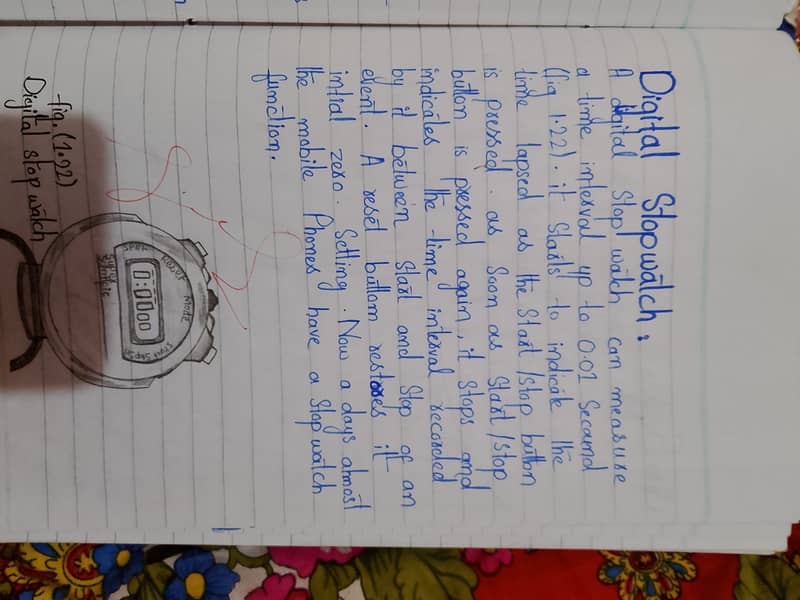 Digital Stopwatch:
A digital Stop watch can measure
a time interval up to 0.01 Secamd
(fig 1.22). it Starts to indicate the
time lapsed as the Start/Stop button
is pressed. as Soon as Start/Stop
button is pressed again, it Stops and
indicates the time interval recorded
by it between Start and Stop of an
event. A reset buttom restores it
intial zero. Setting. Now a days almost
the mobile Phones have a Stopwatch
function.
Reset Mode
0:0000
Start Stop
fig. (1.92)
Digital stop watch